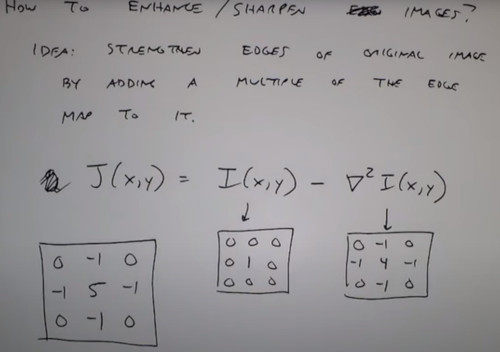 HOW TO ENHANCE / SHARPEN IMAGES?
IDEA: STRENGTHEN EDGES OF ORIGINAL IMAGE
BY ADDING A MULTIPLE OF THE EDGE
MAP TO IT.
J(x,y) = I(x,y) - ∇² I(x,y)
↓ ↓
0 0 0
0 1 0
0 0 0
0 -1 0
-1 4 -1
0 -1 0
0 -1 0
-1 5 -1
0 -1 0